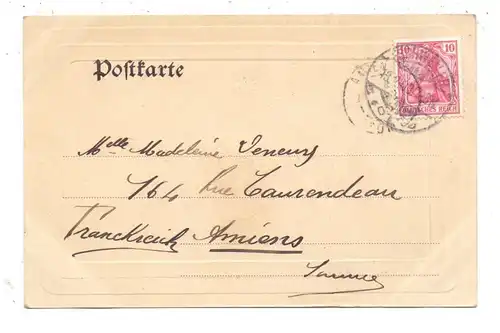 Postkarte
10 10
REICH
Melle Madeleine Veneurs
164 Rue Laurendeau
Franckreich Amiens
Somme